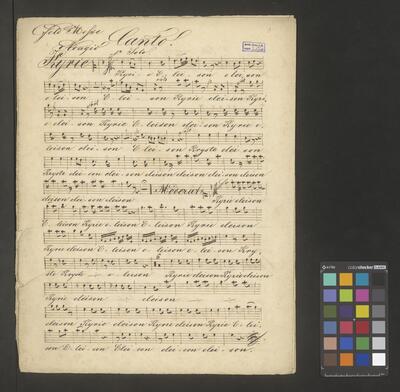 Canto.
Adagio
Solo
Kyrie
Kyri - e E - lei - son elei - son
e - lei - son E - lei - son Kyrie elei - son Kyri,
e elei - son Kyrie E - leison elei - son Kyrie e -
leison elei - son E - lei - son Kryste elei - son
Kryste elei - son elei - son eleison eleison elei - son eleison
Moderat:
eleison elei - son eleison Kyrie eleison
E - leison Kyrie e - leison E - leison Kyrie eleison
Kyrie eleison E - leison e - leison e - lei - son Kry,
ste Kryste e - leison Kyrie eleison Kyrie eleison
Kyrie eleison - eleison -
eleison Kyrie eleison Kyrie eleison Kyrie E - lei -
son E - lei - son Elei - son elei - son elei - son.
colorchecker